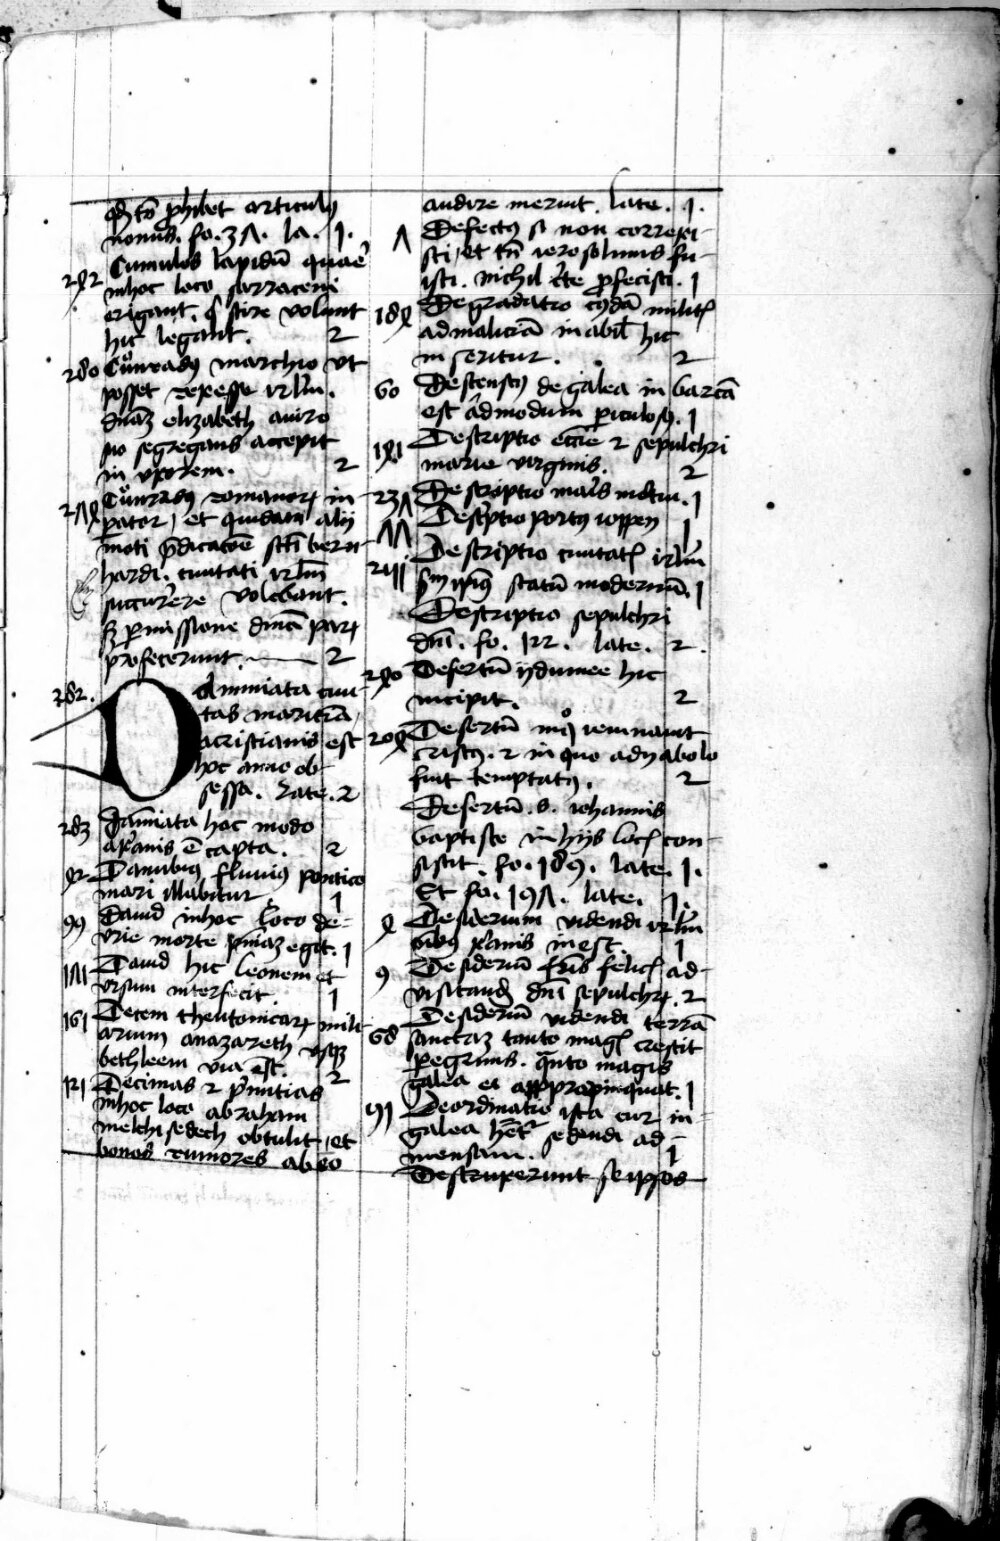 qd to phibet articulus
nonus. fo. 37. la. 1.
242 Cumulos lapidu quare
inhoc loco sarraceni
erigant. q scire volunt
hic legant. 2
280 Cunradus marchio vt
posset expresse irlm.
dnaz elizabeth aviro
suo segregans accepit
in vxorem. 2
274 Cunradus romanor im
pator, et quidam alij
moti pdicatoe scti bern
hardi. civitati irlm
succurrere volebant.
sz pmissione dmca par
profecerunt. 2
282. Damiata civi
tas maritia,
acristianis est
hoc anno ob
sessa. Late. 2
283 Damiata hoc modo
axpanis e capta. 2
42 Danubius fluvius pontico
mari illabitur 1
99 David inhoc loco de
vrie morte pniaz egit. 1
171 David hic leonem et
vrsum interfecit. 1
161 Decem theutonicar mili
arium anazareth vsqz
bethleem via est. 2
121 Decimas 2 pmitias
inhoc loco abraham
melchisedech obtulit, et
bonos rumores ab eo
audire meruit. late. 1.
7 Defectus si non correxi
sti, et tn ierosolimis fu
isti. nichil rcte profecisti. 1
184 Degradatio cuisda milit
admaliciam inabil hic
inseritur. 2
60 Descensus degalea in barca
est admodum piculosus. 1
141 Descriptio eccie 2 sepulchri
marie virginis. 2
237 Descriptio maris mortui. 1
77 Descptio portus ioppen 1
213 Descriptio civitatis irlm
scdm ipius statu modernu. 1
Descriptio sepulchri
dni. fo. 122. late. 2.
240 Desertu ijdumee hic
incipit. 2
204 Desertu inq ieiunavit
cristus. 2 in quo adyabolo
fuit temptatus. 2
Desertu. s. iohannis
baptiste in hijs locis con
sistit. fo. 189. late. 1.
Et fo. 197. late. 1.
4 Desiderium videndi irlm
oibus xpanis inest. 1
9 Desideriu fris felicis ad
visitand dni sepulchr. 2
68 Desideriu videndi terra
sanctaz tanto magis crescit
peregrinis. qnto magis
galea ei appropinquat. 1
91 Deordinatio ista cur in
galea hetr sedendi ad
mensam. 1
Destruxerunt seipsos